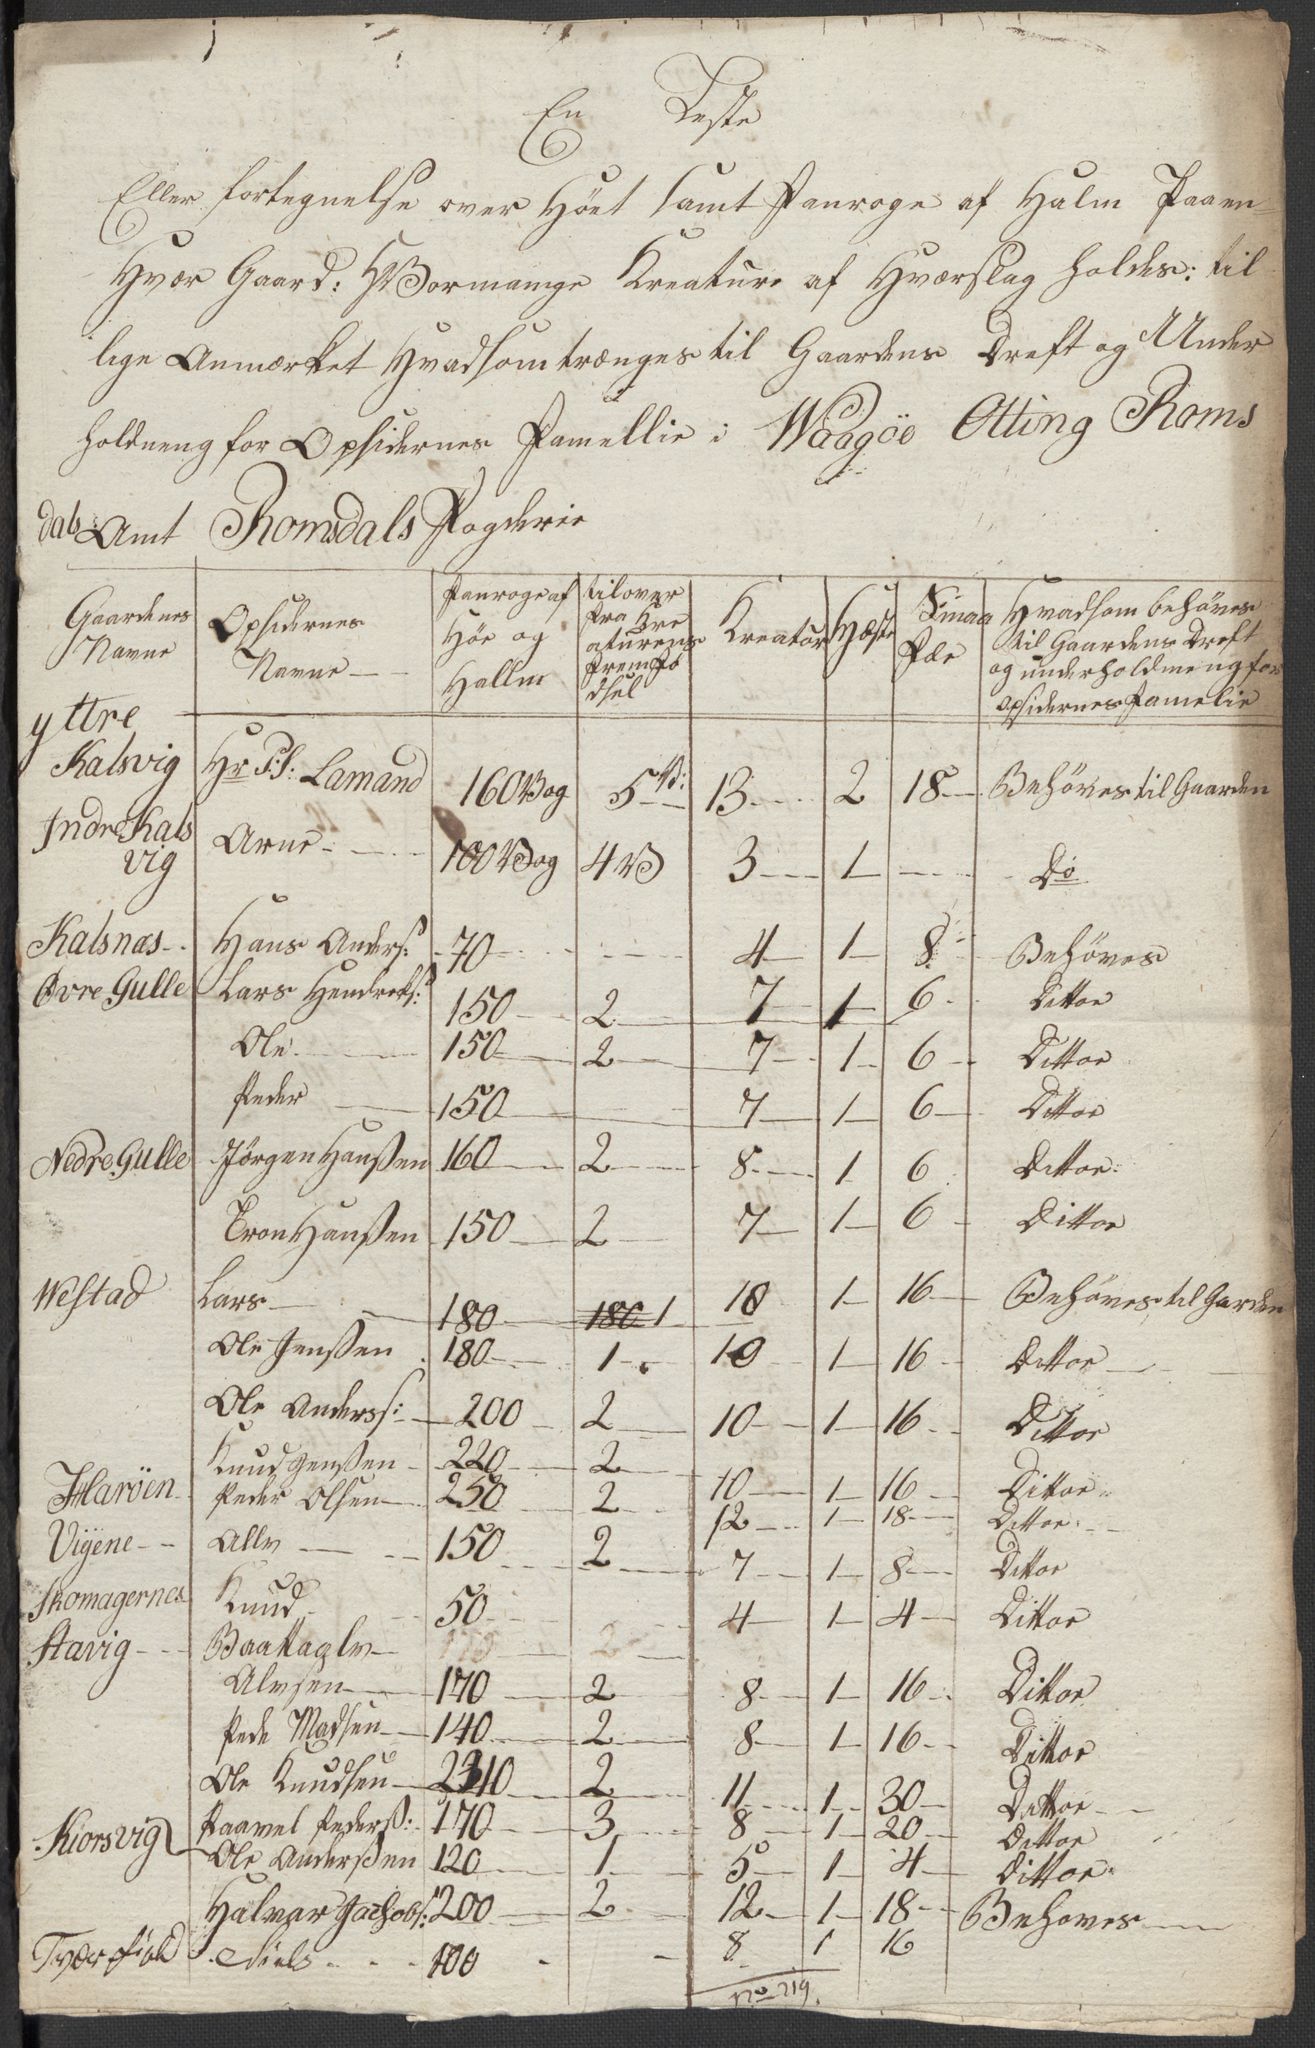 En Leste
Eller fortegnelse over Höet samt Fanroge af Halm Paa en
Hvær Gaard: Hvormange Kreature af Hværslag holdes: til
lige Anmærket Hvadsom trænges til Gaardens Dreft og Under
holdneng for Opsidernes Famellie i Waagöe Otting Roms
dals Amt Romsdals Fogderie
Gaardenes Navne | Opsidernes Navne | Fanroge af Höe og Hallm | tilover fra Kre aturens fremfö dsel | Kreatur | Hæste | Smaa Fæe | Hvadsom behöves til Gaardens Dreft og underholdneng for opsidernes Famelie
yttre
Kalsvig Hr S:S: Lamand 160 Vog 5 V: 13 2 18 Behöves til Gaarden
Indre Kals
vig Arne 100 Vog 4 V 3 1 Do
Kalsnæs Hans Anders: 70 4 1 8 Behöves
Øvre Gulle Lars Hendreks: 150 2 7 1 6 Dittoe
Ole 150 2 7 1 6 Dittoe
Peder 150 7 1 6 Dittoe
Nedre Gulle Jörgen Hanßen 160 2 8 1 6 Dittoe
Tron Hanßen 150 2 7 1 6 Dittoe
Westad Lars 180 180 1 10 1 16 Behöves til Garden
Ole Jenßen 180 1 10 1 16 Dittoe
Ole Anderss: 200 2 10 1 16 Dittoe
Knud Jenßen 220 2 10 1 16 Dittoe
Haröen Peder Olsen 250 2 12 1 18 Dittoe
Vigene Allv 150 2 7 1 8 Dittoe
Skomagernes Knud 50 4 1 4 Dittoe
Stavig
Alvsen 170 2 8 1 16 Dittoe
Pede Madsen 140 2 8 1 16 Dittoe
Ole Knudsen 2 11 1 30 Dittoe
Kiorsvig Paavel Pederß: 170 3 8 1 20 Dittoe
Ole Anderßen 120 1 5 1 4 Dittoe
Halvar Jachobs: 200 2 12 1 18 Behoves
Tværfiold Niels 100 8 1 16
No 219.